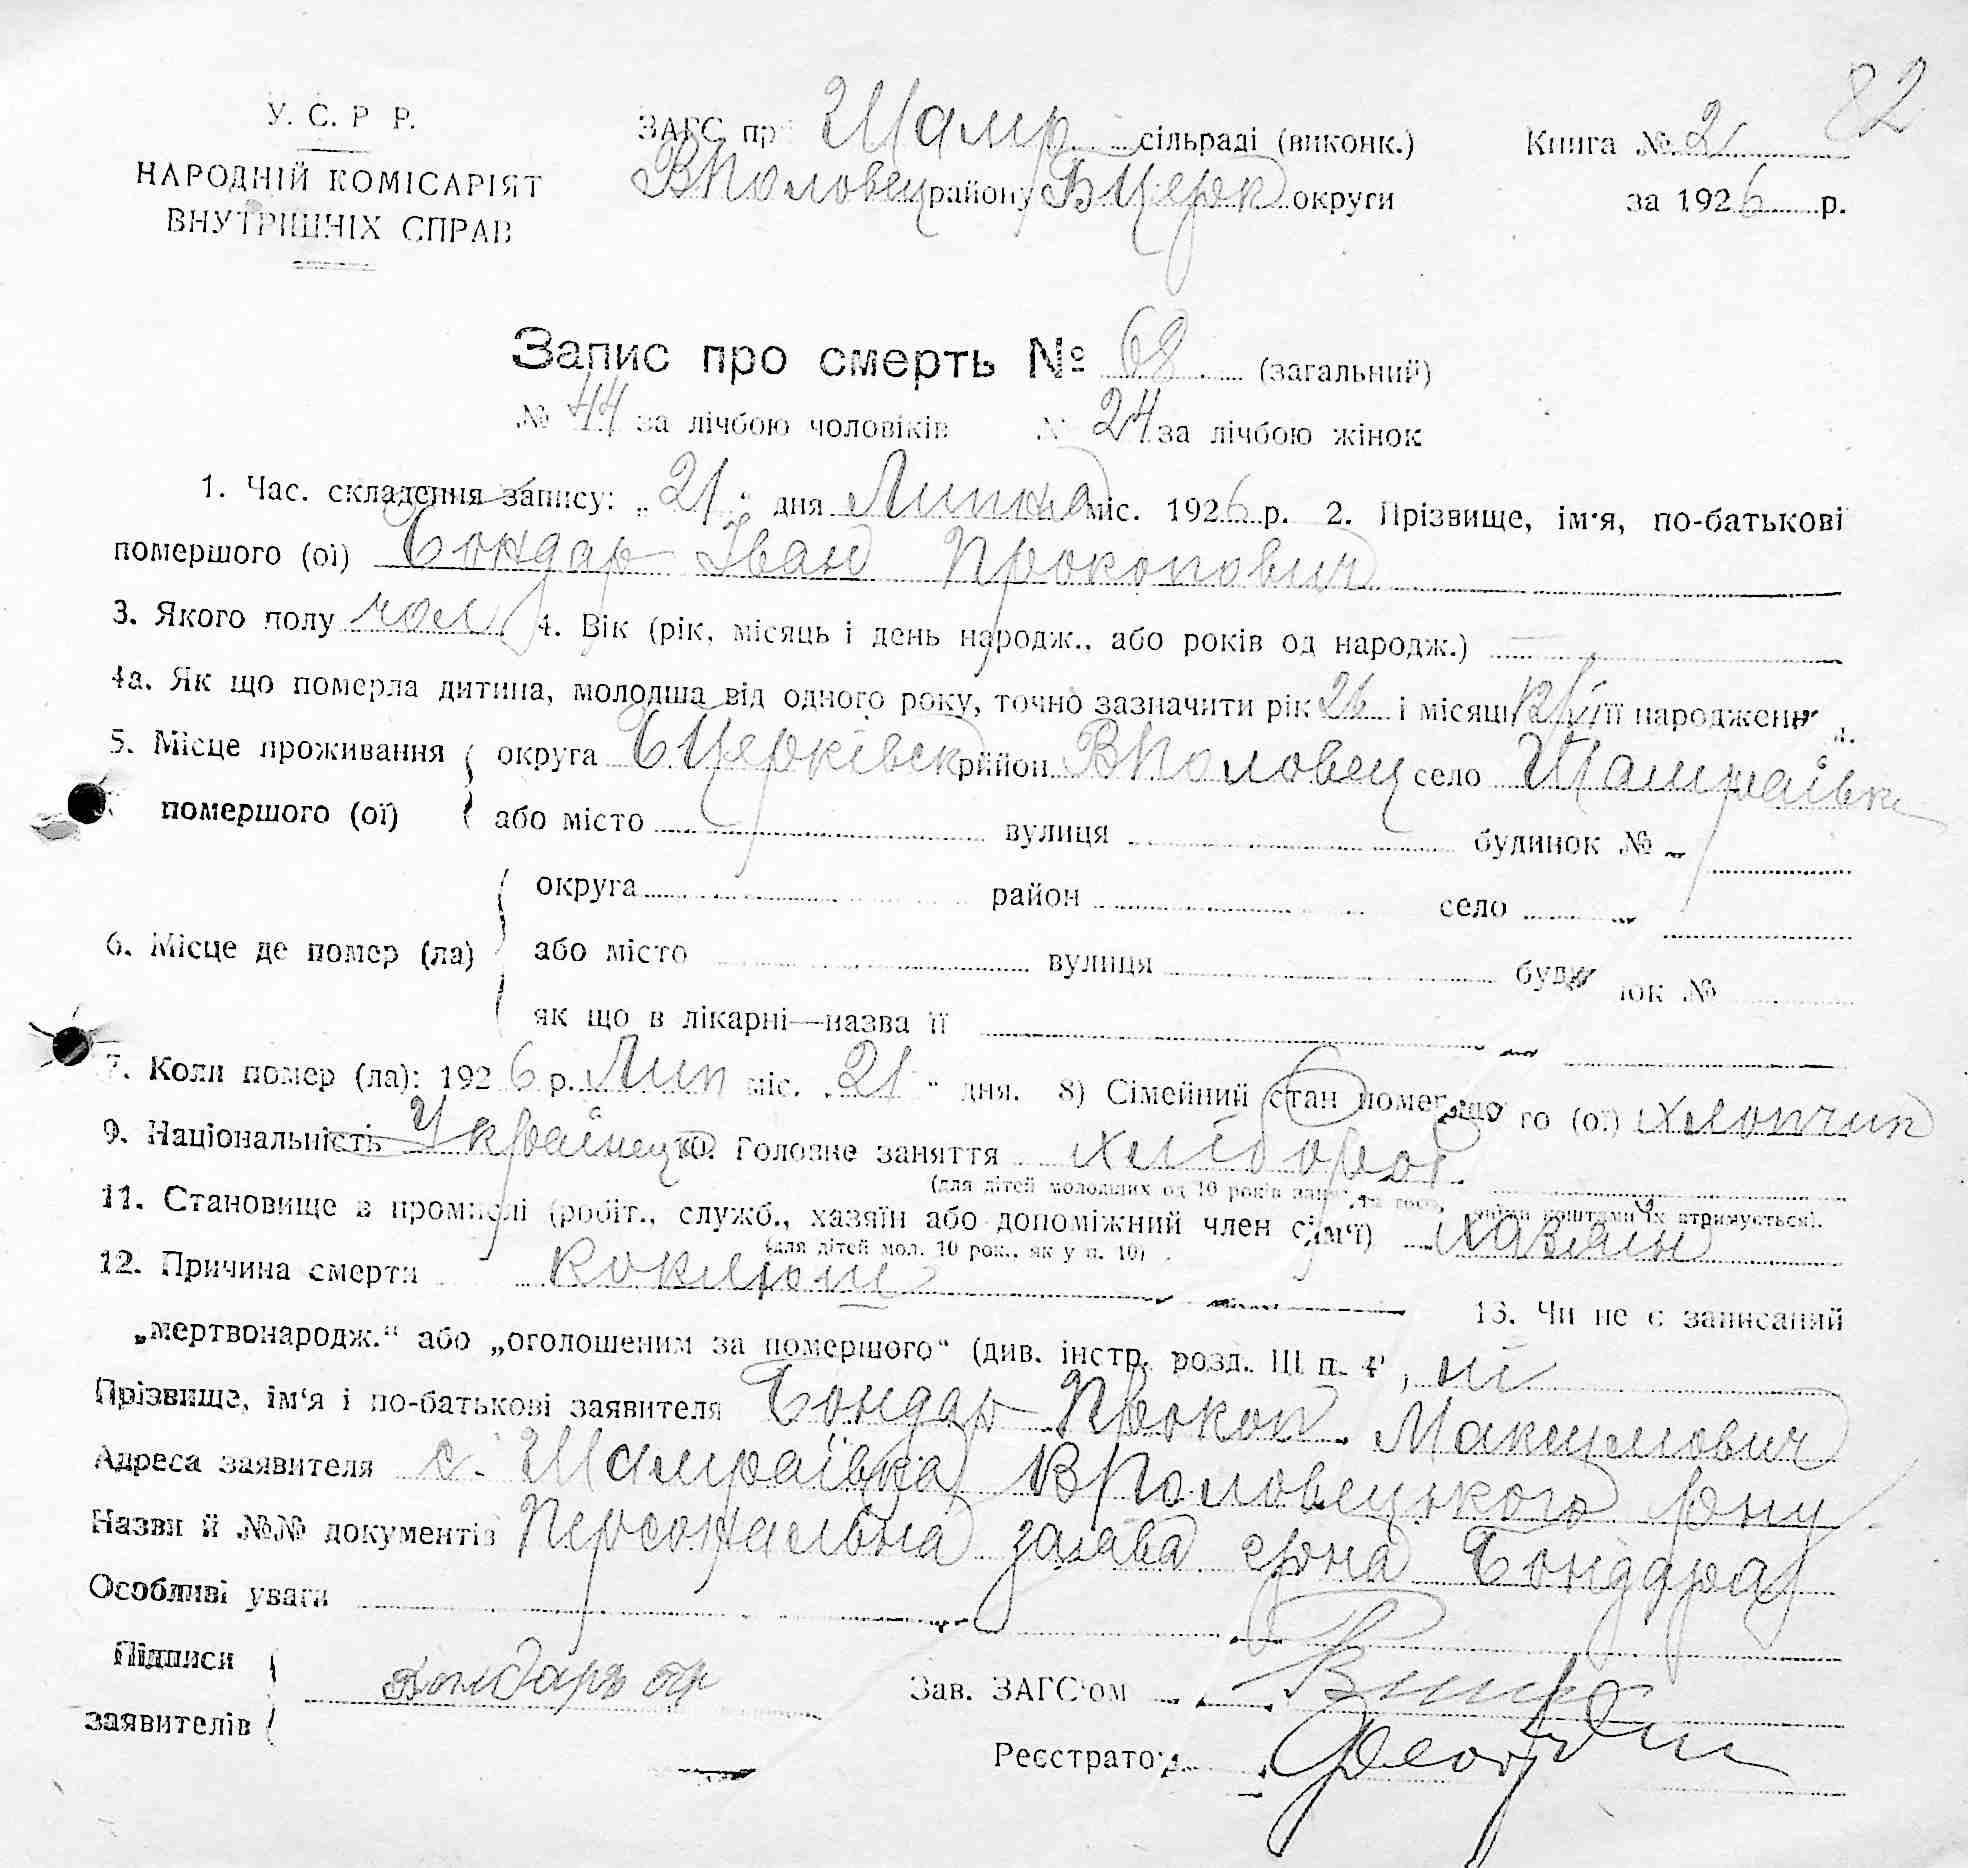 82
У. С. Р Р.
НАРОДНІЙ КОМІСАРІЯТ
ВНУТРІШНІХ СПРАВ
ЗАГС при Шамр. сільраді (виконк.)
ВПоловец району БЦерк округи
Книга № 2
за 1926 р.
Запис про смерть № 68 (загальний)
№ 44 за лічбою чоловіків № 24 за лічбою жінок
1. Час. складення запису: „21“ дня Липня міс. 1926 р. 2. Прізвище, ім'я, по-батькові
помершого (ої) Бондар Іван Прокопович
3. Якого полу чол 4. Вік (рік, місяць і день народж., або років од народж.)
4а. Як що померла дитина, молодша від одного року, точно зазначити рік 26 і місяць її народження
5. Місце проживання округа БЦерківськ район ВПоловец село Шамраївка
помершого (ої) або місто вулиця будинок №
округа район село
6. Місце де помер (ла) або місто вулиця будинок №
як що в лікарні—назва її
7. Коли помер (ла): 1926 р. Лип міс. 21 “ дня. 8) Сімейний стан помершого (ої) хлопчик
9. Національність Українець 10. Головне заняття хлібороб
(для дітей молодших од 10 років коштами їх утримується).
11. Становище в промислі (робіт., служб., хазяїн або допоміжний член сім'ї) хазяїн
(для дітей мол. 10 рок., як у п. 10)
12. Причина смерти коклюш 13. Чи не є записаний
„мертвонародж.“ або „оголошеним за помершого“ (див. інстр. розд. III п. 4), ні
Прізвище, ім'я і по-батькові заявителя Бондар Прокоп Макимович
Адреса заявителя с. Шамраївка ВПоловецького рну
Назви й №№ документів Персональна заява грна Бондаря
Особливі уваги
Підписи
заявителів
Бондарь
Зав. ЗАГС'ом
Реєстратор